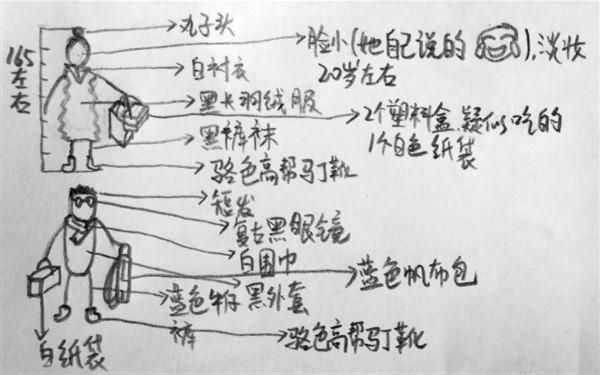 丸子头
脸小(她自己说的 ),淡妆
20岁左右
165左右
白衬衣
黑长羽绒服
2个塑料盒,疑似吃的
1个白色纸袋
黑裤袜
骆色高帮马丁靴
短发
复古黑眼镜
白围巾
蓝色帆布包
黑外套
蓝色牛仔裤
骆色高帮马丁靴
白纸袋